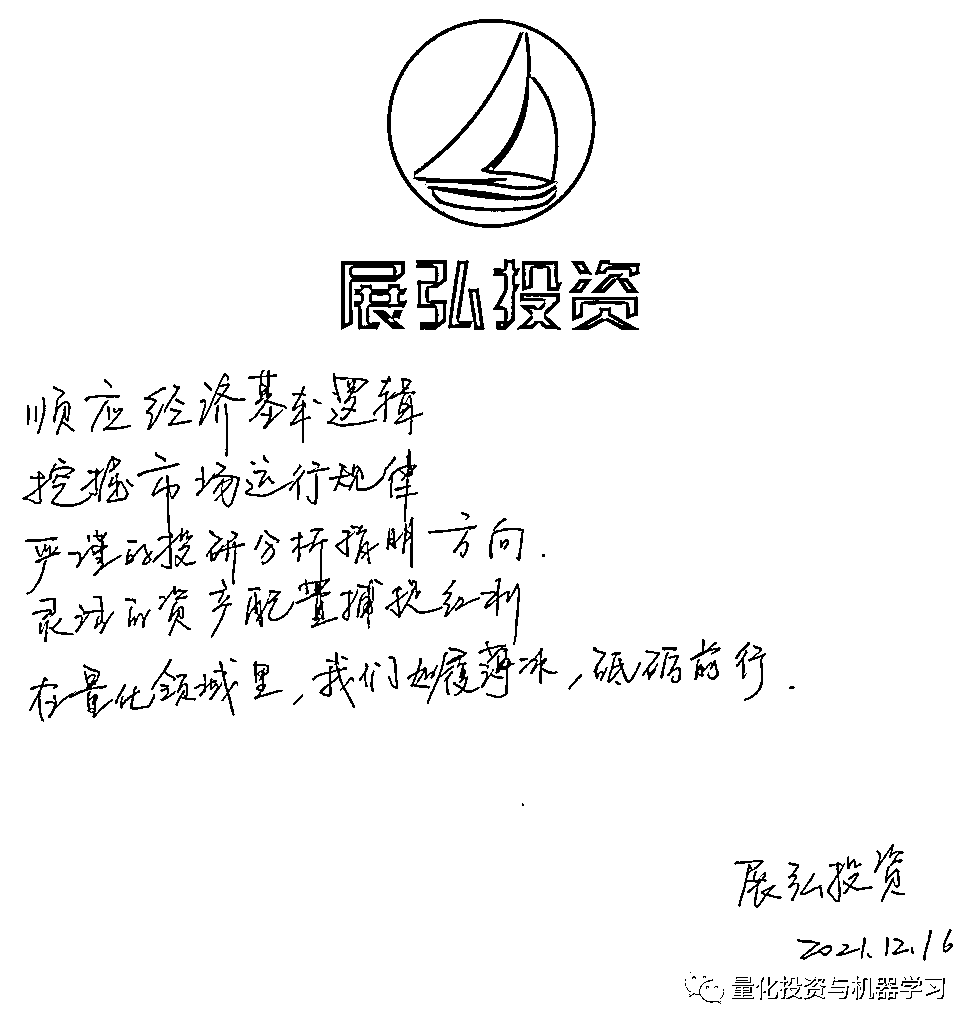 展弘投资
顺应经济基本逻辑
挖掘市场运行规律
严谨的投研分析指明方向.
灵活的资产配置捕捉红利
在量化领域里,我们如履薄冰,砥砺前行.
展弘投资
2021.12.16
量化投资与机器学习